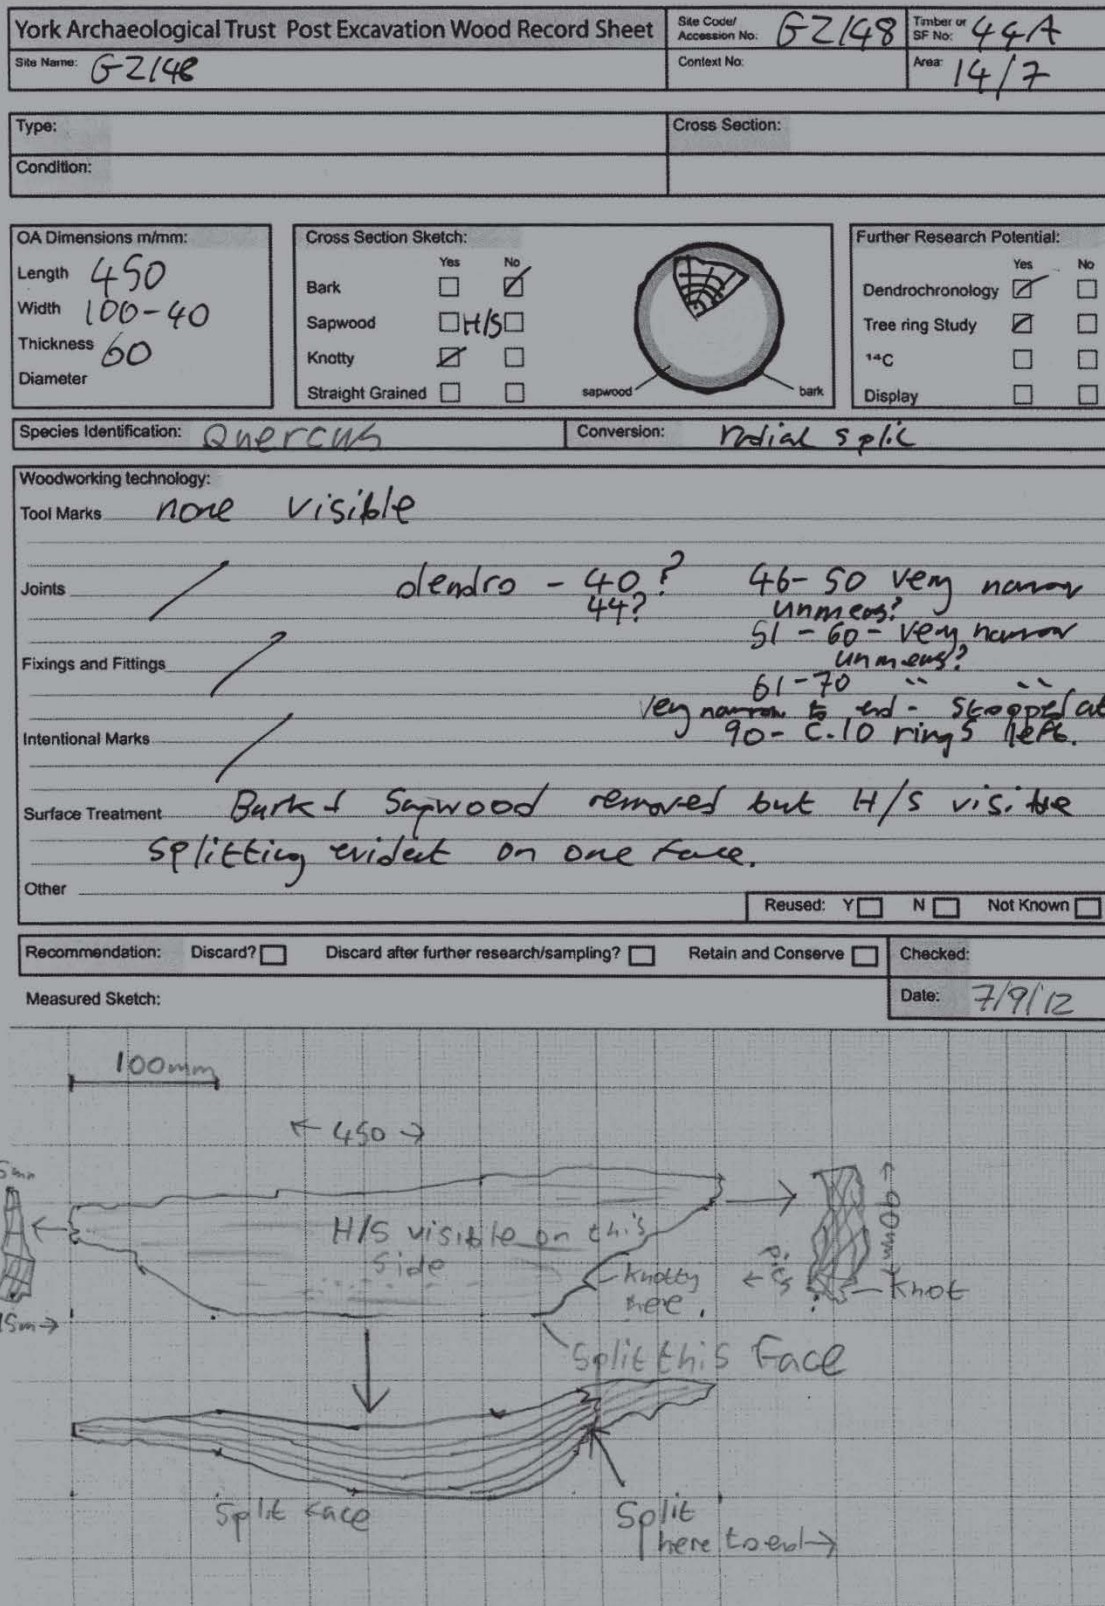 York Archaeological Trust Post Excavation Wood Record Sheet
Site Code/ Accession No: GZ148
Timber or SF No: 44A
Site Name: GZ148
Context No:
Area: 14/7
Type:
Cross Section:
Condition:
OA Dimensions m/mm:
Length 450
Width 100-40
Thickness 60
Diameter
Cross Section Sketch:
Yes No
Bark
Sapwood H/S
Knotty
Straight Grained
sapwood
bark
Further Research Potential:
Yes No
Dendrochronology
Tree ring Study
14C
Display
Species Identification: Quercus
Conversion: radial split
Woodworking technology:
Tool Marks none visible
Joints
dendro - 40?
44?
46-50 very narrow
unmeas?
51-60- very narrow
unmeas?
61-70 " "
very narrow to end - stopped at
90- c.10 rings left.
Fixings and Fittings
Intentional Marks
Surface Treatment Bark & Sapwood removed but H/S visible
splitting evident on one face.
Other
Reused: Y N Not Known
Recommendation: Discard? Discard after further research/sampling? Retain and Conserve
Checked:
Measured Sketch:
Date: 7/9/12
100mm
← 450 →
5mm
H/S visible on this
side
Knotty
here.
← 90mm →
Knot
15m→
Split this Face
Split face
Split
here to end→